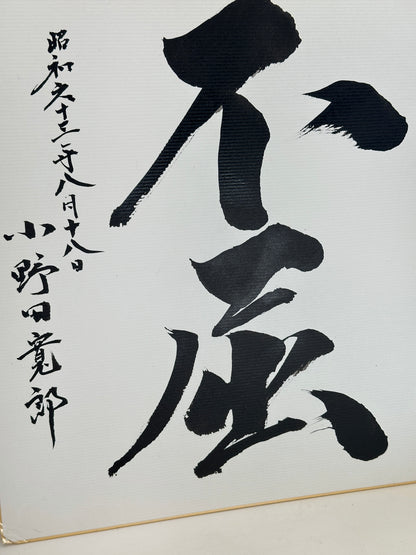 不屈
昭和六十三年八月十八日
小野田寛郎